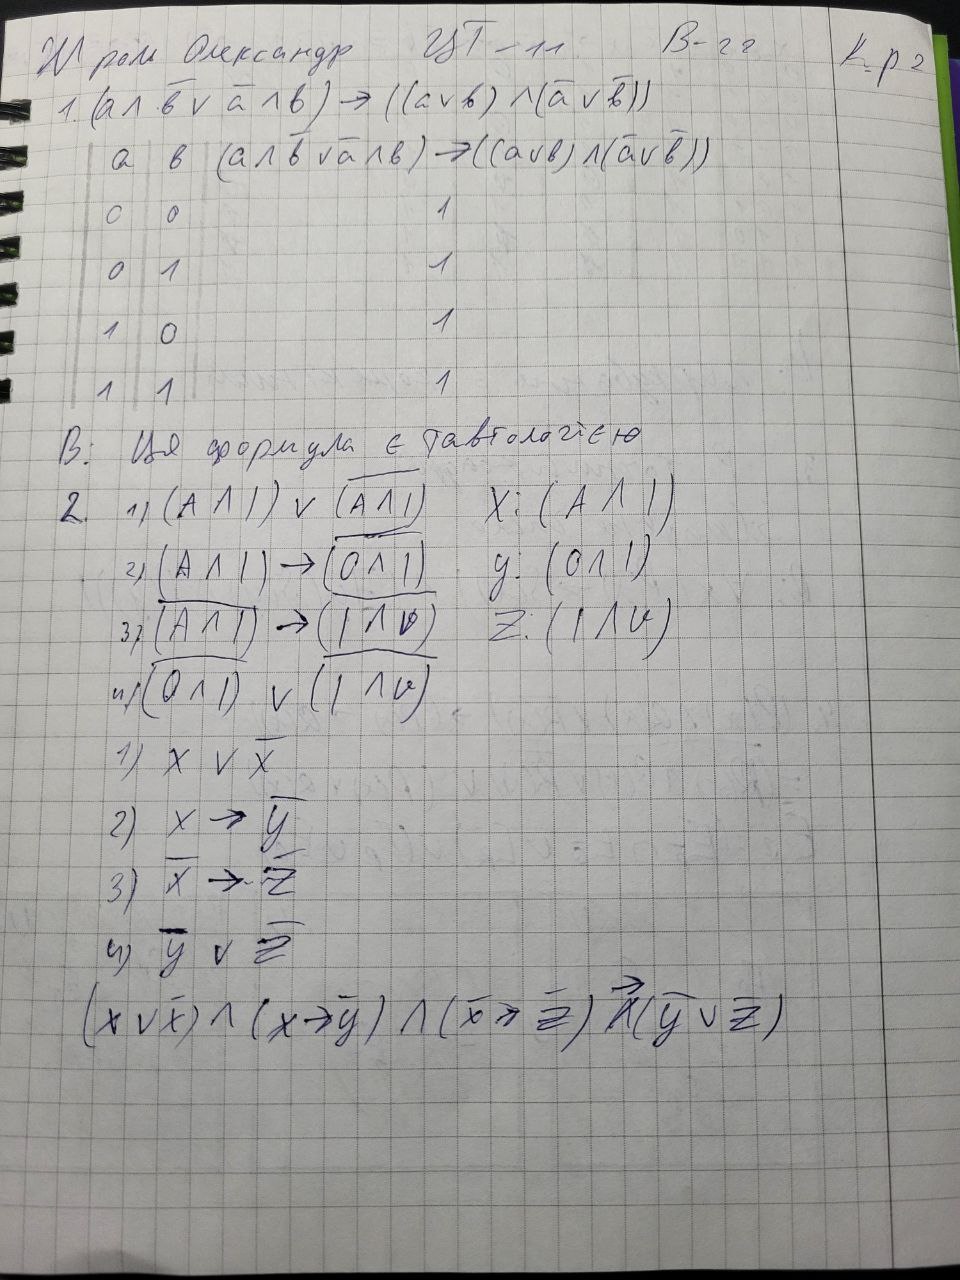 Олександр ЦТ-11 В-22 К.р 2
1. (a ∧ b̅ ∨ a̅ ∧ b) → ((a ∨ b) ∧ (a̅ ∨ b̅))
a b (a ∧ b̅ ∨ a̅ ∧ b) → ((a ∨ b) ∧ (a̅ ∨ b̅))
0 0 1
0 1 1
1 0 1
1 1 1
В: Ця формула є тавтологією
2. 1) (A ∧ 1) ∨ (A̅ ̅∧̅ ̅1̅) X: (A ∧ 1)
2) (A ∧ 1) → (0̅ ̅∧̅ ̅1̅) y: (0 ∧ 1)
3) (A̅ ̅∧̅ ̅1̅) → (1̅ ̅∧̅ ̅v̅) Z: (1 ∧ v)
4) (0̅ ̅∧̅ ̅1̅) ∨ (1̅ ̅∧̅ ̅v̅)
1) x ∨ x̅
2) x → y̅
3) x̅ → z̅
4) y̅ ∨ z̅
(x ∨ x̅) ∧ (x → y̅) ∧ (x̅ → z̅) → (y̅ ∨ z̅)